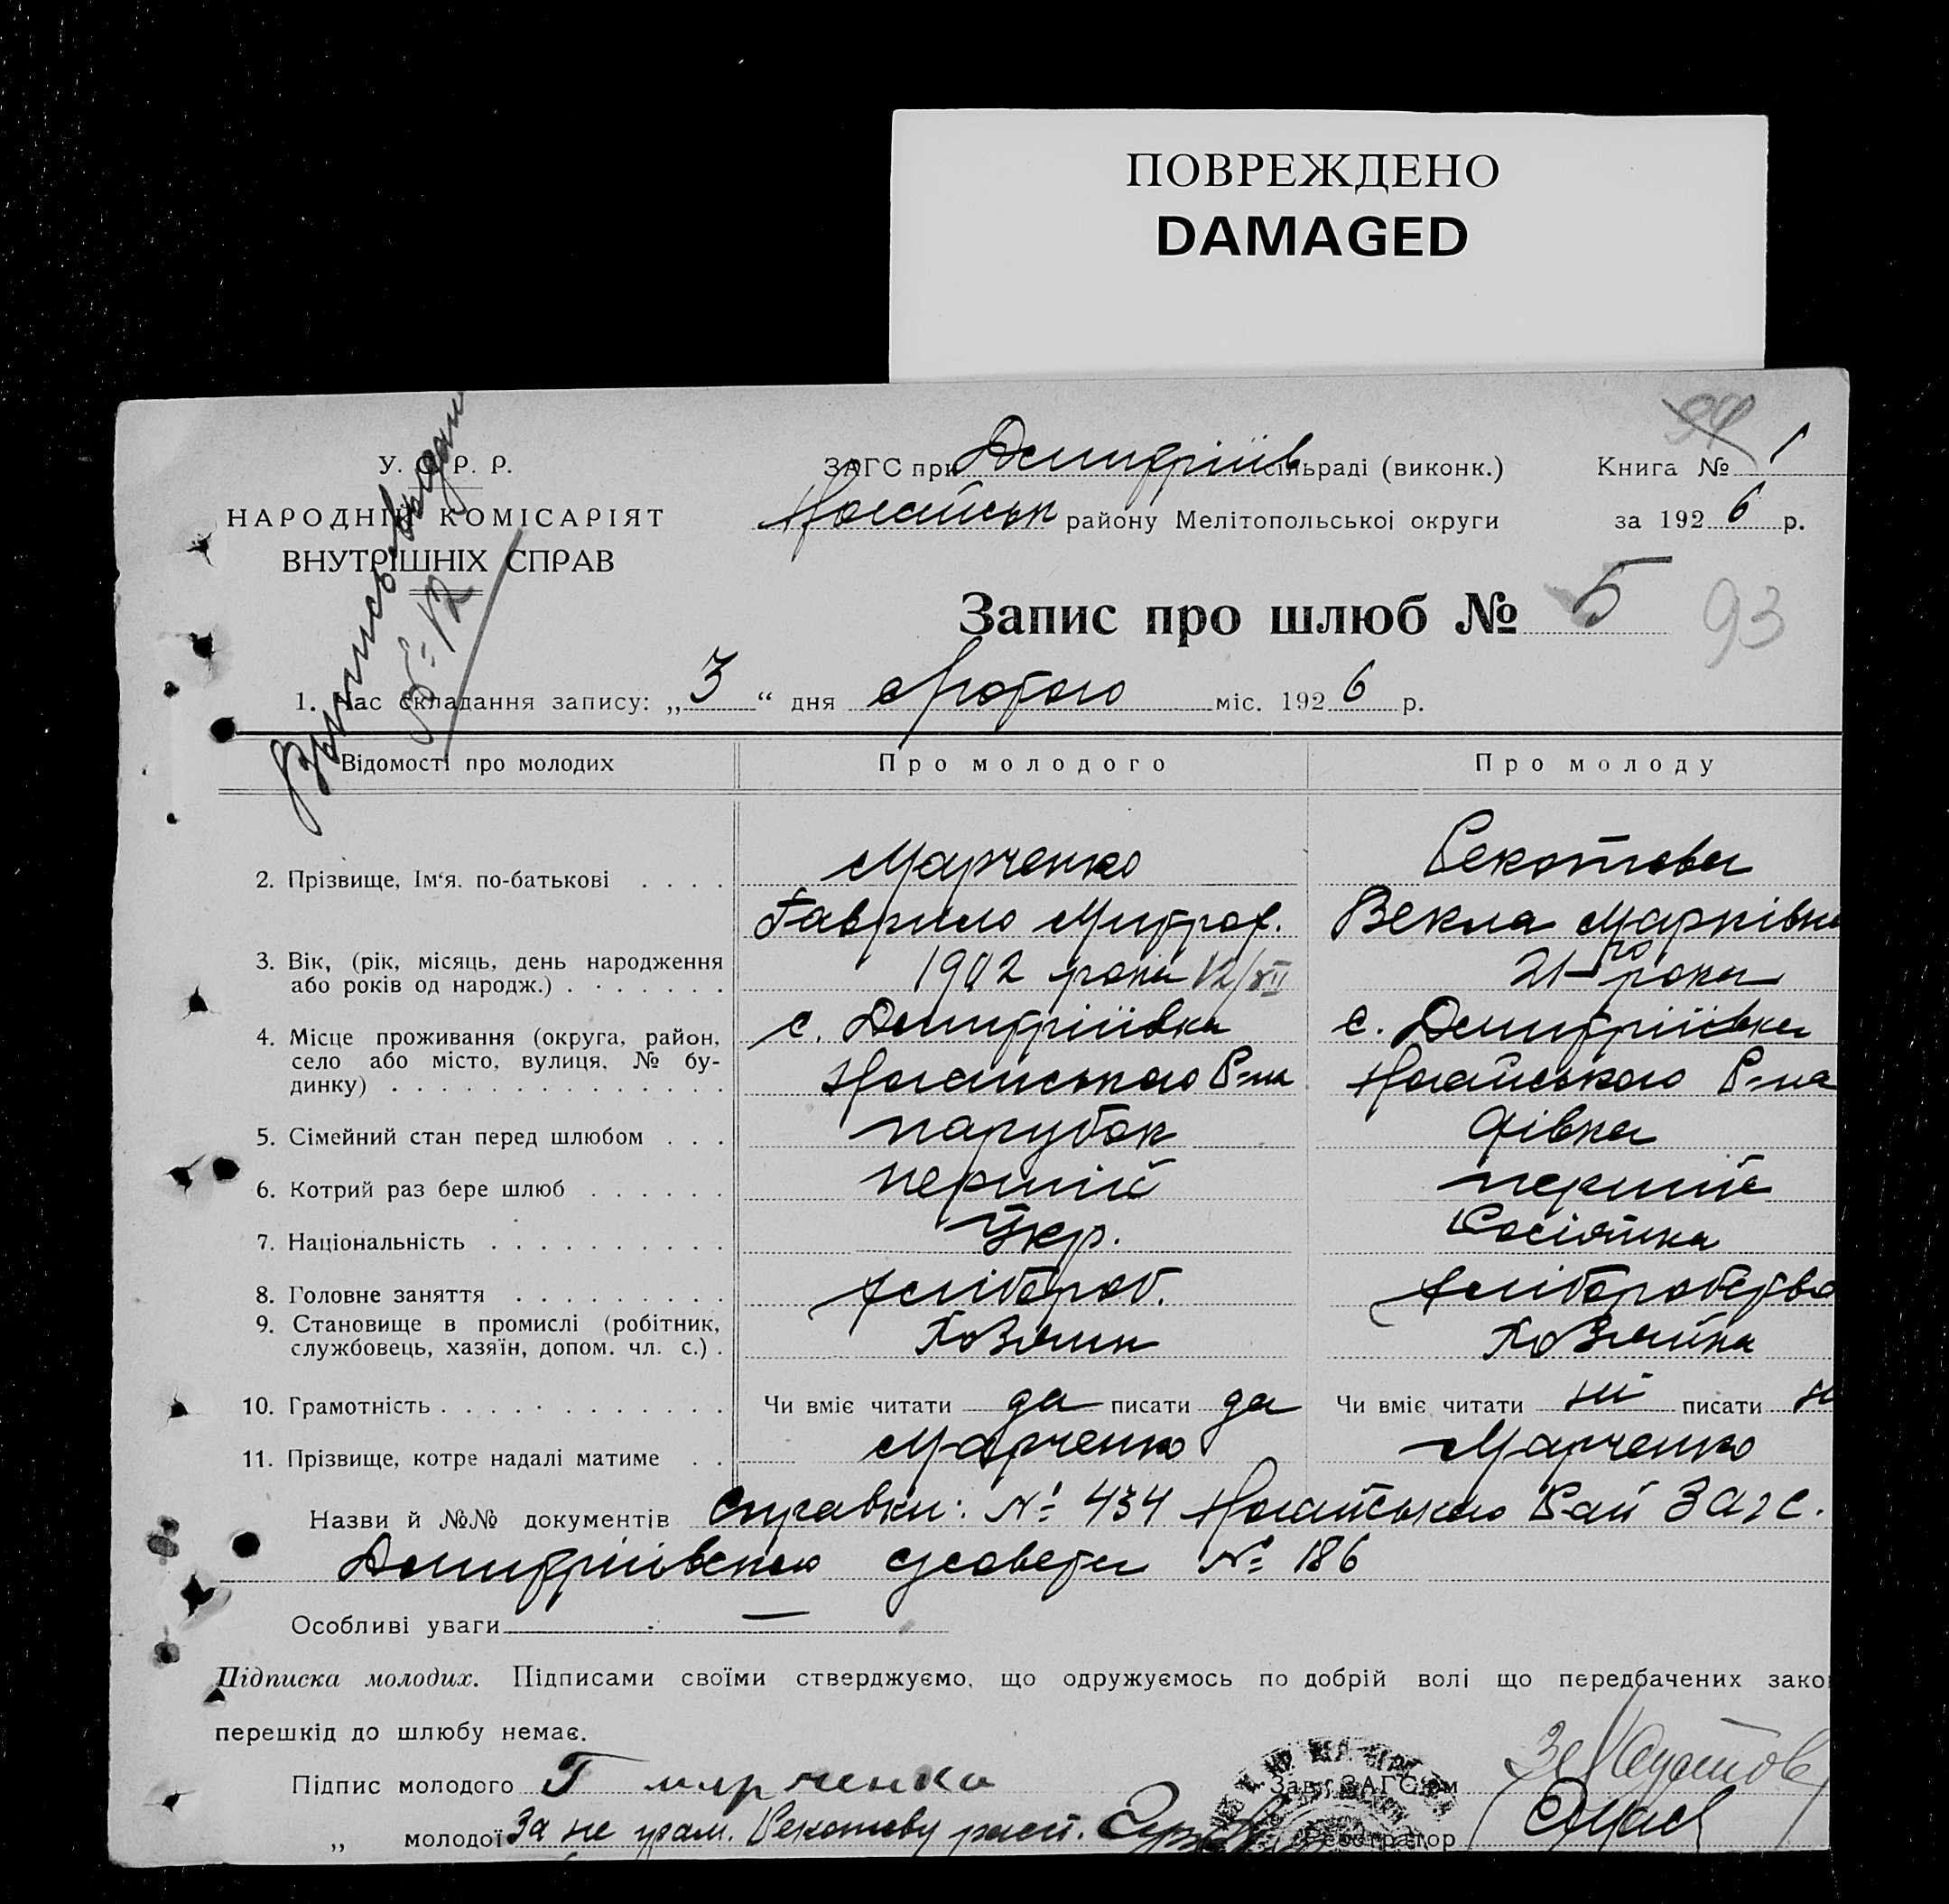 ПОВРЕЖДЕНО
DAMAGED
У. С. Р. Р.
НАРОДНІЙ КОМІСАРІЯТ
ВНУТРІШНІХ СПРАВ
Випись видан
№ 12
ЗАГС при Дмитріїв сільраді (виконк.)
Ногайськ району Мелітопольської округи
94
Книга № 1
за 1926 р.
Запис про шлюб № 5
93
1. Час складання запису: „3“ дня Лютого міс. 1926 р.
Відомості про молодих Про молодого Про молоду
2. Прізвище, Ім'я. по-батькові . . . . Марченко Секотова
Гаврило Митроф. Векла Марківна
3. Вік, (рік, місяць, день народження 1902 рока 12/XII 21-го рока
або років од народж.) . . . . . . .
4. Місце проживання (округа, район, с. Дмитріївка с. Дмитріївка
село або місто, вулиця, № бу- Ногайського Р-на Ногайського Р-на
динку) . . . . . . . . . . . . . .
5. Сімейний стан перед шлюбом . . . парубок дівка
6. Котрий раз бере шлюб . . . . . . перший перший
7. Національність . . . . . . . . . . Укр. Росіянка
8. Головне заняття . . . . . . . . . хлібороб. хлібороб
9. Становище в промислі (робітник, Хозяин Хозяйка
службовець, хазяїн, допом. чл. с.) .
10. Грамотність . . . . . . . . . . . . Чи вміє читати да писати да Чи вміє читати ні писати н
11. Прізвище, котре надалі матиме . . Марченко Марченко
Назви й №№ документів Справки: № 434 Ногайського Рай ЗАГС.
Дмитріївскою № 186
Особливі уваги —
Підписка молодих. Підписами своїми стверджуємо, що одружуємось по добрій волі що передбачених зако
перешкід до шлюбу немає.
Підпис молодого Г марченко Зав. ЗАГС'ом
„ молодої За не грам. Секотову расп. Реєстратор